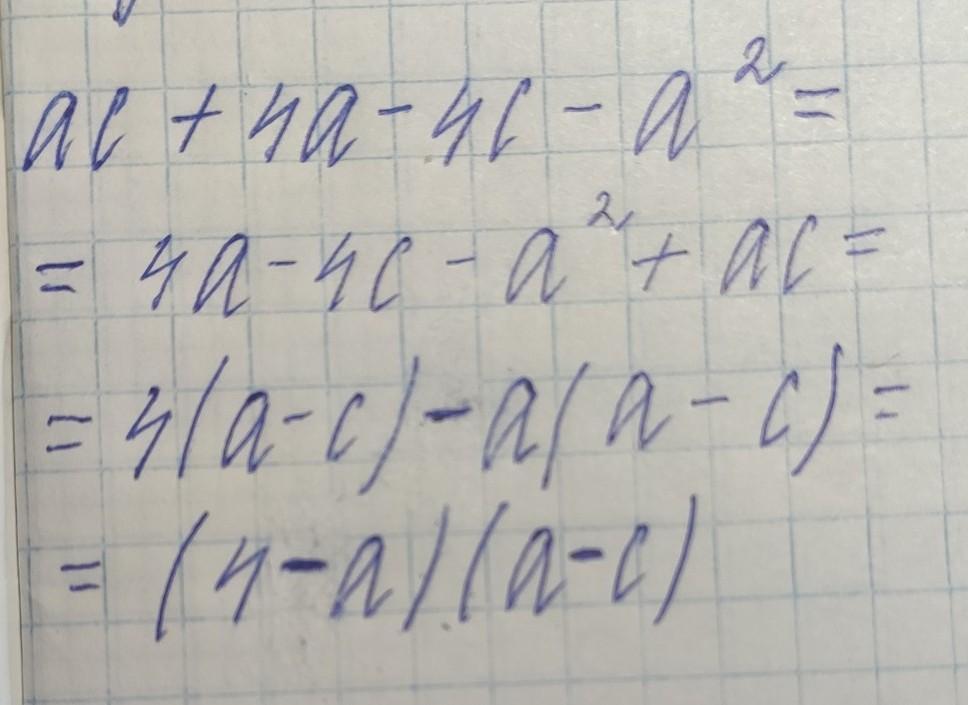 ac + 4a - 4c - a² =
= 4a - 4c - a² + ac =
= 4(a - c) - a(a - c) =
= (4 - a)(a - c)